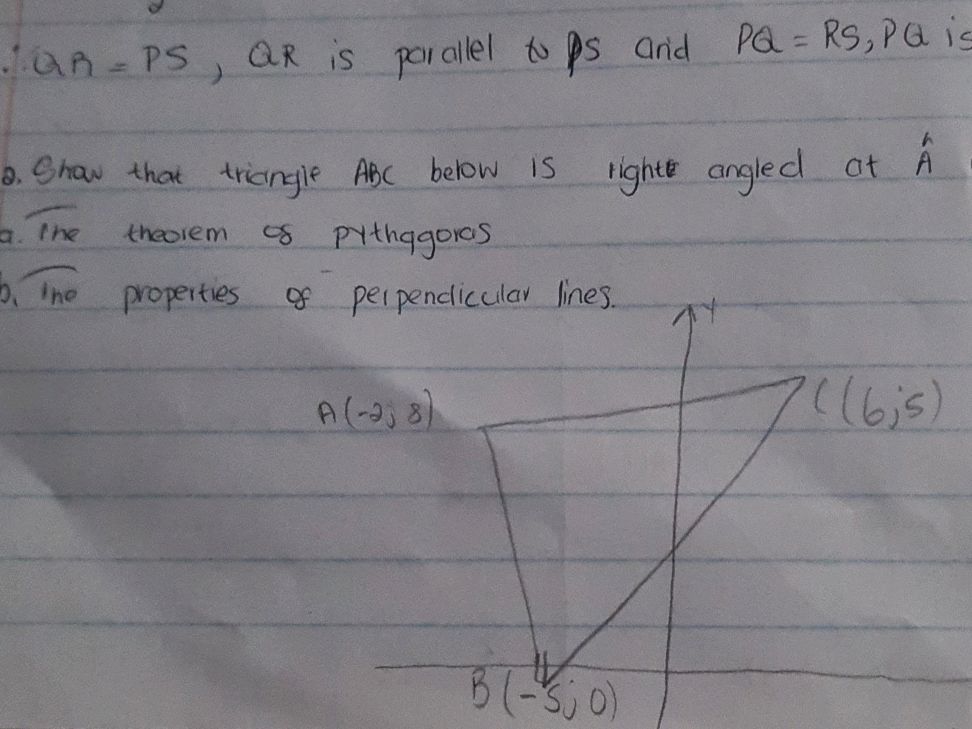 QR = PS, QR is parallel to PS and PQ = RS, PQ is
2. Show that triangle ABC below is right angled at Â
a. The theorem of pythagoras
b. The properties of perpendiccular lines.
Y
A(-2; 8)
C(6;5)
B(-5; 0)